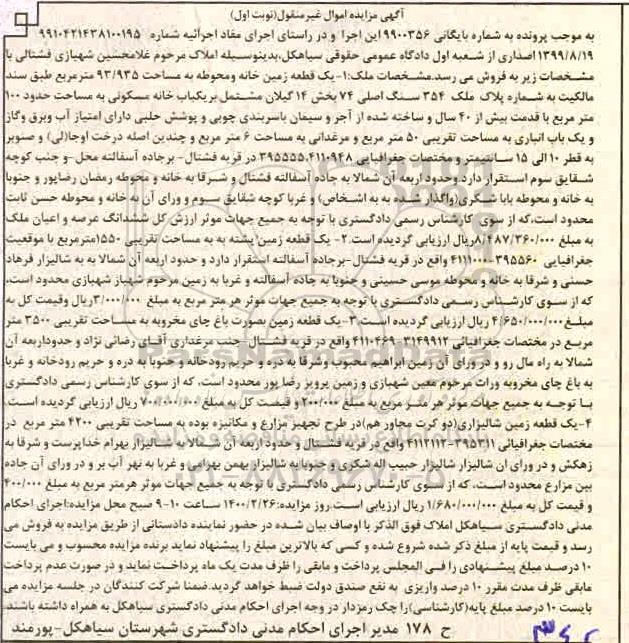 آگهی مزایده اموال غیرمنقول(نوبت اول)
به موجب پرونده به شماره بایگانی ۹۹۰۰۳۵۶ این اجرا و در راستای اجرای مفاد اجرائیه شماره ۹۹۱۰۴۲۱۴۳۸۱۰۰۱۹۵
۱۳۹۹/۸/۱۹اصداری از شعبه اول دادگاه عمومی حقوقی سیاهکل،بدینوسیله املاک مرحوم غلامحسین شهبازی فشتالی با
مشخصات زیر به فروش می رسد.مشخصات ملک:۱-یک قطعه زمین خانه ومحوطه به مساحت ۹۳/۹۳۵ مترمربع طبق سند
مالکیت به شماره پلاک ملک ۳۵۴ سنگ اصلی ۷۴ بخش ۱۴ گیلان مشتمل بریکباب خانه مسکونی به مساحت حدود ۱۰۰
متر مربع با قدمت بیش از ۴۰ سال و ساخته شده از آجر و سیمان باسربندی چوبی و پوشش حلبی دارای امتیاز آب وبرق وگاز
و یک باب انباری به مساحت تقریبی ۵۰ متر مربع و مرغدانی به مساحت ۶ متر مربع و چندین اصله درخت اوجا(لی) و صنوبر
به قطر ۱۰ الی ۱۵ سانتیمتر و مختصات جغرافیایی ۳۹۵۵۵۵،۴۱۱۰۹۲۸ در قریه فشتال- برجاده آسفالته محل-و جنب کوچه
شقایق سوم استقرار دارد.وحدود اربعه آن شمالا به جاده آسفالته فشتال و شرقا به خانه و محوطه رمضان رضاپور و جنوبا
به خانه و محوطه بابا شکری(واگذار شده به به اشخاص) و غربا کوچه شقایق سوم و ورای آن به خانه و محوطه حسن ثابت
محدود است،که از سوی کارشناس رسمی دادگستری با توجه به جمیع جهات موثر ارزش کل ششدانگ عرصه و اعیان ملک
به مبلغ ۸/۴۸۷/۳۶۰/۰۰۰ریال ارزیابی گردیده است.۲- یک قطعه زمین پشته به به مساحت تقریبی ۱۵۵۰مترمربع با موقعیت
جغرافیایی ۳۹۵۵۶۰-۴۱۱۱۰۰۰ واقع در قریه فشتال-برجاده آسفالته استقرار دارد و حدود اربعه آن شمالا به به شالیزار فرهاد
حسنی و شرقا به خانه و محوطه موسی حسینی و جنوبا به جاده آسفالته و غربا به زمین مرحوم شهباز شهبازی محدود است،
که از سوی کارشناس رسمی دادگستری با توجه به جمیع جهات موثر هر متر مربع به مبلغ ۳/۰۰۰/۰۰۰ریال وقیمت کل به
مبلغ۴/۶۵۰/۰۰۰/۰۰۰ ریال ارزیابی گردیده است.۳-یک قطعه زمین بصورت باغ چای مخروبه به مساحت تقریبی ۳۵۰۰ متر
مربع در مختصات جغرافیائی ۳۱۴۹۹۱۲-۴۱۱۰۴۶۹ واقع در قریه فشتال- جنب مرغداری آقای رضائی نژاد و حدوداربعه آن
شمالا به راه مال رو و در ورای آن زمین ابراهیم محبوب وشرقا به دره و حریم رودخانه وجنوبا به دره و حریم رودخانه و غربا
به باغ چای مخروبه وراث مرحوم معین شهبازی و زمین پرویز رضا پور محدود است، که از سوی کارشناس رسمی دادگستری
با توجه به جمیع جهات موثر هر متر مربع به مبلغ ۲۰۰/۰۰۰ و قیمت کل به مبلغ ۷۰۰/۰۰۰/۰۰۰ ریال ارزیابی گردیده است.
۴-یک قطعه زمین شالیزاری(دو کرت مجاور هم)در طرح تجهیز مزارع و مکانیزه بوده به مساحت تقریبی ۴۲۰۰ متر مربع در
مختصات جغرافیائی ۳۹۵۳۱۱-۴۱۱۲۱۱۲ واقع در قریه فشتال وحدود اربعه آن شمالا به شالیزار بهرام خداپرست و شرقا به
زهکش و در ورای ان شالیزار شالیزار حبیب اله شکری وجنوبا به شالیزار بهمن بهرامی و غربا به نهر آب بر و در ورای آن جاده
بین مزارع محدود است، که از سوی کارشناس رسمی دادگستری با توجه به جمیع جهات موثر هرمتر مربع به مبلغ ۴۰۰/۰۰۰
و قیمت کل به مبلغ ۱/۶۸۰/۰۰۰/۰۰۰ ریال ارزیابی است.روز مزایده:۱۴۰۰/۲/۲۶ ساعت ۱۰-۹ صبح محل مزایده:اجرای احکام
مدنی دادگستری سیاهکل املاک فوق الذکر با اوصاف بیان شده در حضور نماینده دادستانی از طریق مزایده به فروش می
رسد و قیمت پایه از مبلغ ذکر شده شروع شده و کسی که بالاترین مبلغ را پیشنهاد نماید برنده مزایده محسوب و می بایست
۱۰ درصد مبلغ پیشنهادی را فی المجلس پرداخت و مابقی را ظرف مدت یک ماه پرداخت نماید و در صورت عدم پرداخت
مابقی ظرف مدت مقرر ۱۰ درصد واریزی به نفع صندق دولت ضبط خواهد گردید.ضمنا شرکت کنندگان در جلسه مزایده می
بایست ۱۰ درصد مبلغ پایه(کارشناسی)را چک رمزدار در وجه اجرای احکام مدنی دادگستری سیاهکل به همراه داشته باشند.
ح ۱۷۸ مدیر اجرای احکام مدنی دادگستری شهرستان سیاهکل-پورمند